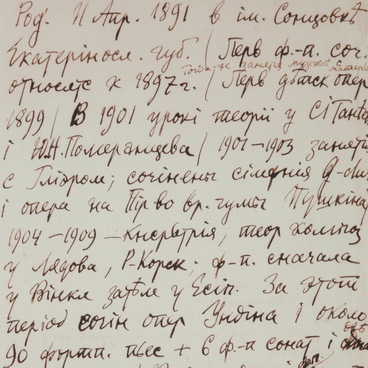 Род. 11 Апр. 1891 в им. Сонцовкѣ
Екатерiносл. губ. / Перв ф.-п. соч.
относятс к 1897 г. / Перв дѣтск опер
1899 / В 1901 урокi теорii у С.I Танѣе
i Ю.Н. Померанцева / 1901-1903 занят
с Глiэром; сочiнены сiмфнiя G-dur
i опера на Пiр во вр. чумы Пушкiна
1904 - 1909 - Кнсрвтрiя, теор композ
у Лядова, Р-Корск; ф-п. сначала
у Вiнкл затѣм у Есiп. За этот
перiод сочiн опер Ундiна i около
90 фортп. пьес + 6 ф-п сонат i